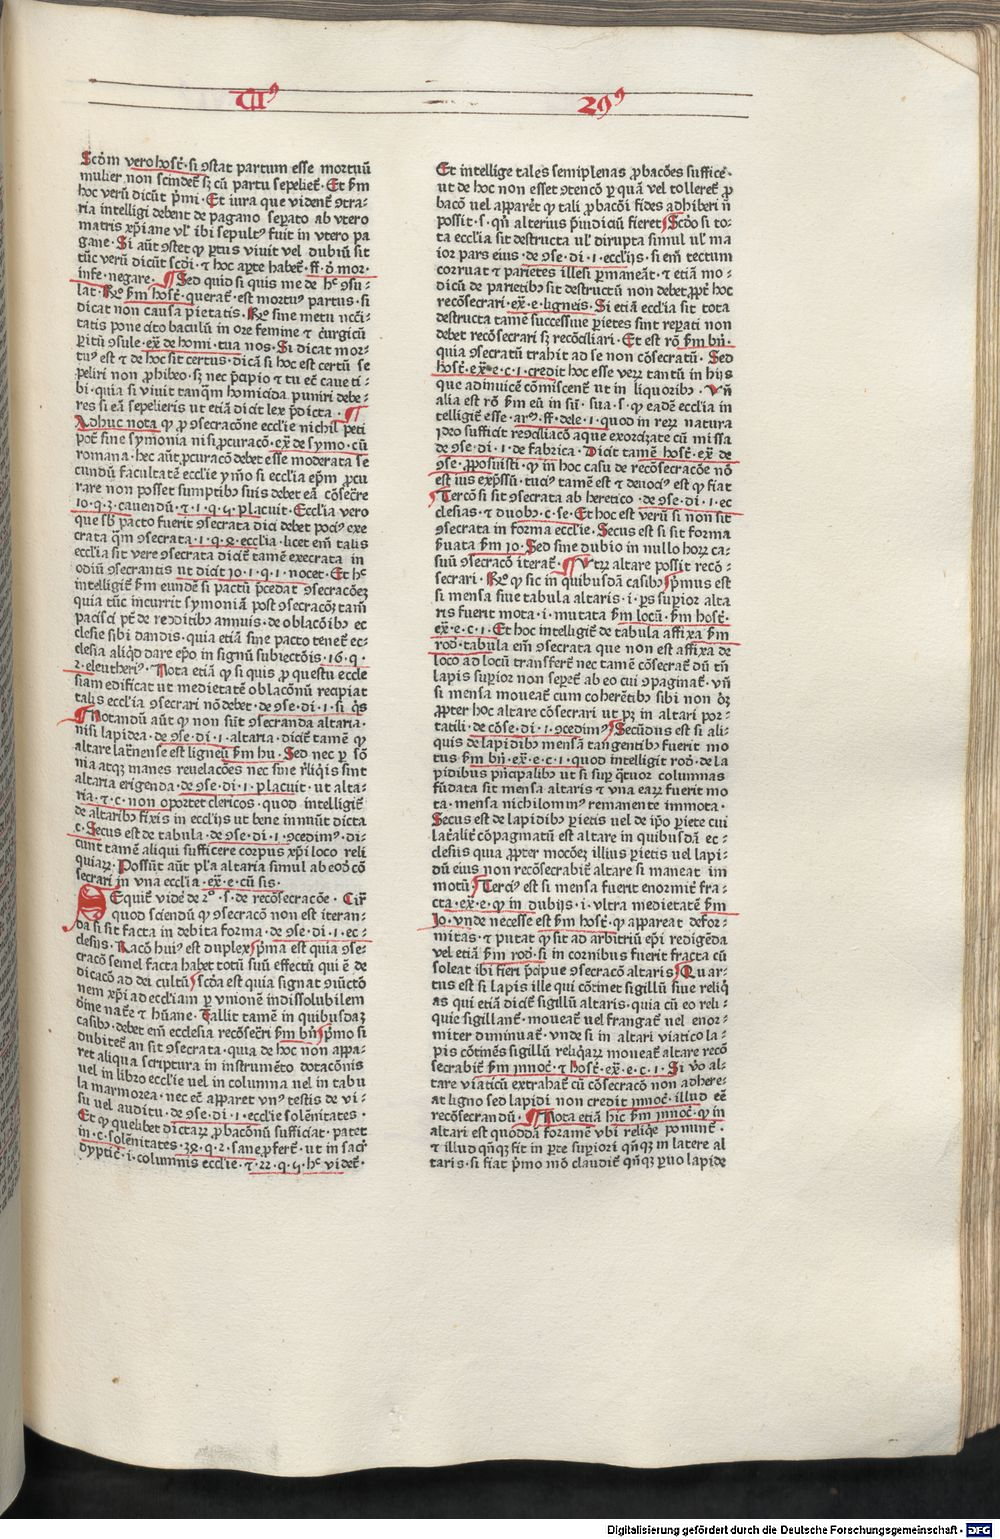 TIꝰ 29ꝰ
Scd̄m vero host̄·si ꝯstat partum esse mortuū
mulier non scindet̄ sꝫ cū partu sepeliet̄·Et ẜm
hoc verū dicūt p̄mi·Et iura que vident̄ ꝯtra⸗
ria intelligi debent de pagano sepato ab vtero
matris xp̄iane vl̓ ibi sepultꝰ fuit in vtero pa
gane·Si aūt ꝯstet ꝙ ꝑtus viuit vel dubiū sit
tūc verū dicūt scd̄i·⁊ hoc aꝑte habet̄·ff·d̓ mor·
infe·negare·¶Sed quid si quis me de h̓ ꝯsu⸗
lat·R̄o ẜm host̄·querat̄·est mortuꝰ partus·si
dicat non causa pietatis·R̄o sine metu ncc̄i⸗
tatis pone cito baculū in ore femine ⁊ cirurgicū
ꝑitū ꝯsule·ex̄ de homi·tua nos·Si dicat mor⸗
tuꝰ est ⁊ de hoc sit certus·dicā si hoc est certū se
peliri non ꝓhibeo·sꝫ nec p̄cipio ⁊ tu et̄ caue ti⸗
bi·quia si viuit tanq̄m homicida puniri debe⸗
res si eā sepelieris ut etiā dicit lex p̄dicta·¶
Adhuc nota ꝙ ꝓ ꝯsecracōne eccl̓ie nichil peti
pōt sine symonia nisi ꝓcuracō·ex̄ de symo·cū
romana·hec aūt ꝓcuracō debet esse moderata se
cundū facultatē eccl̓ie ymo si eccl̓ia ep̄m ꝓcu
rare non posset sumptibꝫ suis debet eā cōsecre
10·q·3·cauendū·⁊·1·q·5·placuit·Eccl̓ia vero
que sb̓ pacto fuerit ꝯsecrata dici debet pociꝰ exe
crata q̄m ꝯsecrata·1·q·2·eccl̓ia·licet em̄ talis
eccl̓ia sit vere ꝯsecrata dicit̄ tamē execrata in
odiū ꝯsecrantis ut dicit io·1·q·1·nocet·Et h̓
intelligit̄ ẜm eundē si pactū p̄cedat ꝯsecracōeꝫ
quia tūc incurrit symoniā post ꝯsecracōꝫ tam̄
pacisci pt̄ de redditibꝫ annuis·de oblacōibꝫ ec
clesie sibi dandis·quia etiā sine pacto tenet̄ ec⸗
clesia aliq̇d dare ep̄o in signū subiectōis·16·q·
2·eleutheriꝰ·Nota etiā ꝙ si quis ꝓ questu eccle
siam edificat ut medietatē oblacōnū recipiat
talis eccl̓ia ꝯsecrari nō debet·de ꝯse·di·1·si q̇s
¶Notandū aūt ꝙ non sūt ꝯsecranda altaria·
nisi lapidea·de ꝯse·di·1·altaria·dicit̄ tamē ꝙ
altare lat̄nense est ligneū ẜm hu·Sed nec ꝑ sō
nia atqꝫ inanes reuelacōes nec sine rl̓iq̇is sint
altaria erigenda·de ꝯse·di·1·placuit·ut alta⸗
ria·⁊·c·non oportet clericos·quod intelligit̄
de altaribꝫ fixis in eccl̓ijs ut bene innuit dicta
c·Secus est de tabula·de ꝯse·di·1·ꝯcedimꝰ·di⸗
cunt tamē aliqui sufficere corpus xp̄i loco reli
quiaꝝ·Possūt aūt pl̓a altaria simul ab eodē cō
secrari in vna eccl̓ia·ex̄·e·cū sis·
Sequit̄ vide de 2º·s·de recōsecracōe·Cir̄
quod sciendū ꝙ ꝯsecracō non est iteran⸗
da si sit facta in debita forma·de ꝯse·di·1·ec⸗
clesijs·Racō huiꝰ est duplex p̄ma est quia ꝯse⸗
cracō semel facta habet totū suū effectū qui ē de
dicacō ad dei cultū scd̄a est quia signat ꝯiūctō
nem xp̄i ad eccl̓iam ꝑ vnionē indissolubilem
diuine nat̄e ⁊ hūane·Fallit tamē in quibusdaꝫ
casibꝫ·debet em̄ ecclesia recōsecr̄i ẜm bn̄ p̄mo si
dubitet̄ an sit ꝯsecrata·quia de hoc non appa⸗
ret aliqua scriptura in instrumēto dotacōnis
uel in libro eccl̓ie uel in columna uel in tabu
la marmorea·nec et̄ apparet vnꝰ testis de vi⸗
su uel auditu·de ꝯse·di·1·eccl̓ie solēnitates·
Et ꝙ quelibet dictaꝝ ꝓbacōnū sufficiat·patet
in·c·solēnitates·3e·q·2·sane ꝓfert̄·ut in sacr̄
dyptic̄·i·columnis eccl̓ie·⁊·22·q·5·h̓ videt̄·
Et intellige tales semiplenas ꝓbacōes sufficē·
ut de hoc non esset ꝯtencō ꝑ quā vel tolleret̄ ꝓ
bacō uel apparēt ꝙ tali ꝓbacōi fides adhiberi n̄
possit·s·qn̄ alterius p̄iudiciū fieret Scd̄o si to⸗
ta eccl̓ia sit destructa ul̓ dirupta simul ul̓ ma
ior pars eius·de ꝯse·di·1·eccl̓ijs·si em̄ tectum
corruat ⁊ parietes illesi ꝑmaneāt·⁊ etiā mo⸗
dicū de parietibꝫ sit destructū non debet ꝓpt̄ hoc
recōsecrari·ex̄·e·ligneis·Si etiā eccl̓ia sit tota
destructa tamē successiue ꝑietes sint repati non
debet recōsecrari sꝫ recōciliari·Et est rō ẜm bn̄·
quia ꝯsecratū trahit ad se non cōsecratū·Sed
host̄·ex̄·e·c·1·credit hoc esse veꝝ tantū in hijs
que adinuicē cōmiscent̄ ut in liquoribꝫ·Vn̄
alia est rō ẜm eū in sūī·sua·s·ꝙ eadē eccl̓ia in
telligit̄ esse·arꝰ·ff·de le·1·quod in reꝝ natura
ideo sufficit recōciliacō aque exorcizate cū missa
de ꝯse·di·1·de fabrica·Dicit tamē host̄·ex̄ de
ꝯse·ꝓposuisti·ꝙ in hoc casu de recōsecracōe nō
est ius exp̄ssū·tuciꝰ tamē est ⁊ deuociꝰ est ꝙ fiat
Tercō si sit ꝯsecrata ab heretico·de ꝯse·di·1·ec
clesias·⁊ duobꝫ·c·se·Et hoc est verū si non sit
ꝯsecrata in forma eccl̓ie·Secus est si sit forma
ẜuata ẜm io·Sed sine dubio in nullo hoꝝ ca⸗
suū ꝯsecracō iterat̄·¶Vtꝝ altare possit recō⸗
secrari·R̄o ꝙ sic in quibusdā casibꝫ p̄mus est
si mensa siue tabula altaris·i·ꝑs suꝑior alta
ris fuerit mota·i·mutata ẜm locū·ẜm host̄·
ex̄·e·c·1·Et hoc intelligit̄ de tabula affixa ẜm
rod̄·tabula em̄ ꝯsecrata que non est affixa de
loco ad locū transfert̄ nec tamē cōsecrat̄ dū tn̄
lapis suꝑior non seꝑet̄ ab eo cui ꝯpaginat̄·vn̄
si mensa moueat̄ cum coherētibꝫ sibi non oꝫ
ꝓpter hoc altare cōsecrari ut pꝫ in altari por⸗
tatili·de cōse·di·1·ꝯcedimꝰ Secūdus est si ali⸗
quis de lapidibꝫ mensā tangentibꝫ fuerit mo
tus ẜm bn̄·ex̄·e·c·1·quod intelligit rod̄·de la
pidibus p̄ncipalibꝫ ut si suꝑ q̄tuor columnas
fūdata sit mensa altaris ⁊ vna eaꝝ fuerit mo
ta·mensa nichilominꝰ remanente immota·
Secus est de lapidibꝫ ꝑietis uel de ip̄o ꝑiete cui
lat̄alit̄ cōpagmatū est altare in quibusdā ec⸗
clesiis quia ꝓpter mocōeꝫ illius ꝑietis uel lapi⸗
dū eius non recōsecrabit̄ altare si maneat im
motū Terciꝰ est si mensa fuerit enormit̄ fra⸗
cta·ex̄·e·ꝙ in dubijs·i·ultra medietatē ẜm
io·vnde necesse est ẜm host̄·ꝙ appareat defor⸗
mitas·⁊ putat ꝙ sit ad arbitriū ep̄i redigēda
vel etiā ẜm rod̄·si in cornibus fuerit fracta cū
soleat ibi fieri p̄cipue ꝯsecracō altaris Quar⸗
tus est si lapis ille qui cōtinet sigillū siue reliq̇
as qui etiā dicit̄ sigillū altaris·quia cū eo reli⸗
quie sigillant̄·moueat̄ uel frangat̄ uel enor⸗
miter diminuat̄·vnde si in altari viatico la⸗
pis cōtinēs sigillū reliq̇aꝝ moueat̄ altare recō
secrabit̄ ẜm innoc̄·⁊ host̄·ex̄·e·c·1·Si vo al⸗
tare viaticū extrahat̄ cū cōsecracō non adhere⸗
at ligno sed lapidi non credit innoc̄·illud eē
recōsecrandū·¶Nota etiā hic ẜm innoc̄·ꝙ in
altari est quoddā foramē vbi reliq̇e ponunt̄·
⁊ illud qn̄qꝫ fit in ꝑte suꝑiori qn̄qꝫ in latere al
taris·si fiat p̄mo mō claudit̄ qn̄qꝫ ꝑuo lapide
Digitalisierung gefördert durch die Deutsche Forschungsgemeinschaft · DFG